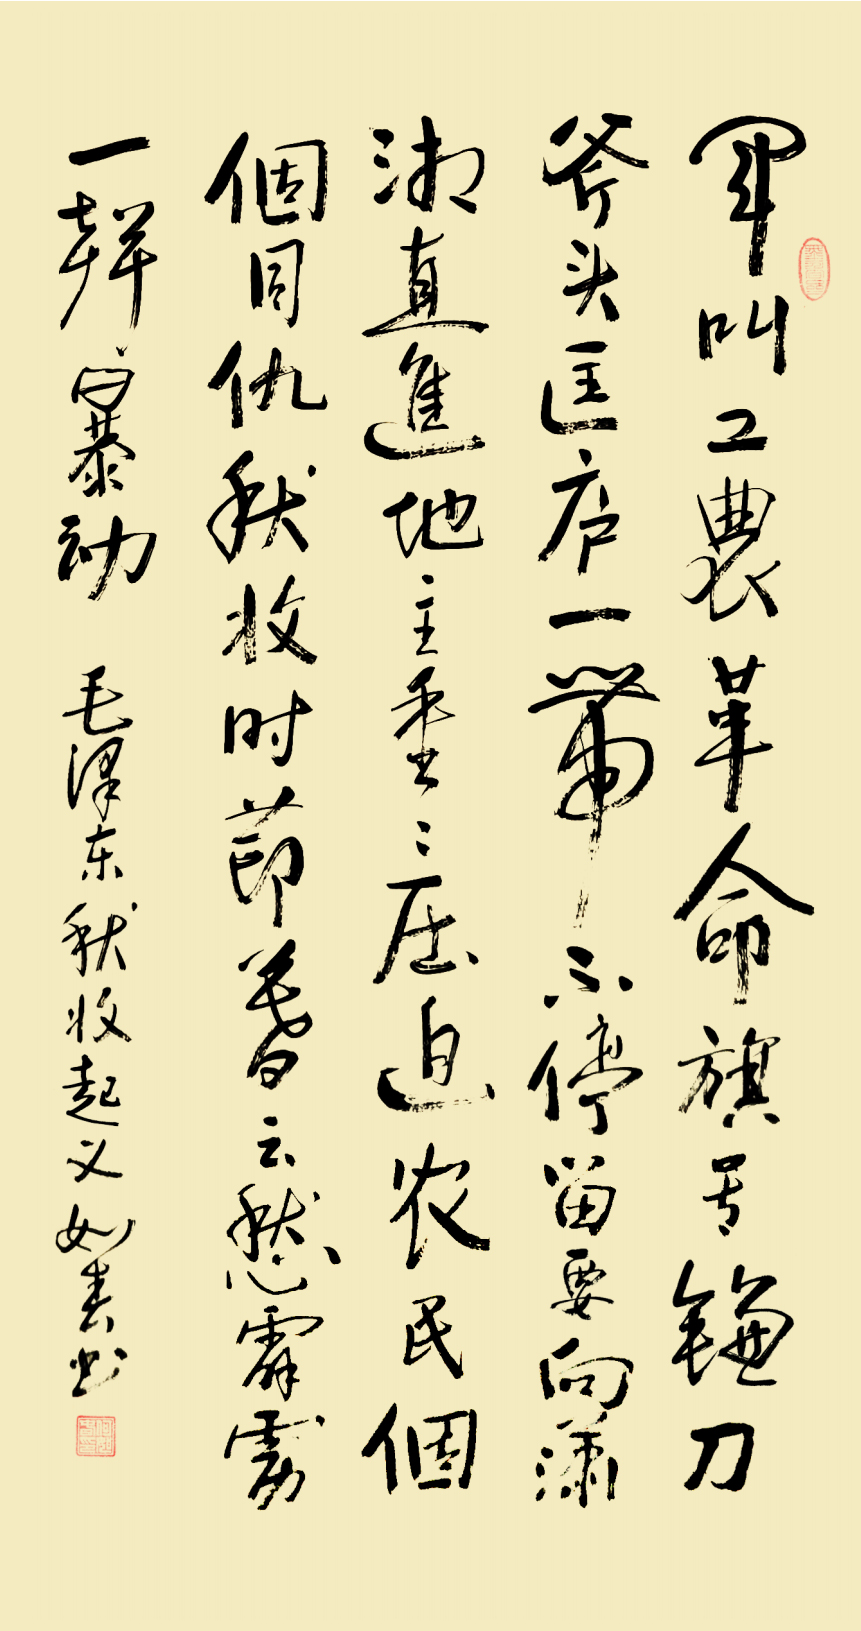 軍叫工農革命旗号镰刀
斧头匡庐一带不停留要向潇
湘直進地主重々压迫农民個
個同仇秋收时节暮云愁霹雳
一聲暴动 毛泽东秋收起义 如春书